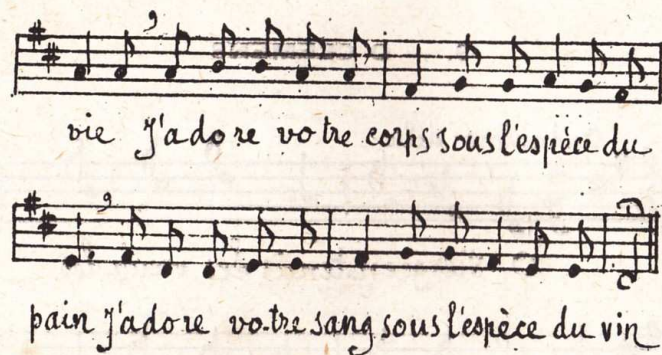 vie J'adore votre corps sous l'espèce du
pain J'adore votre sang sous l'espèce du vin